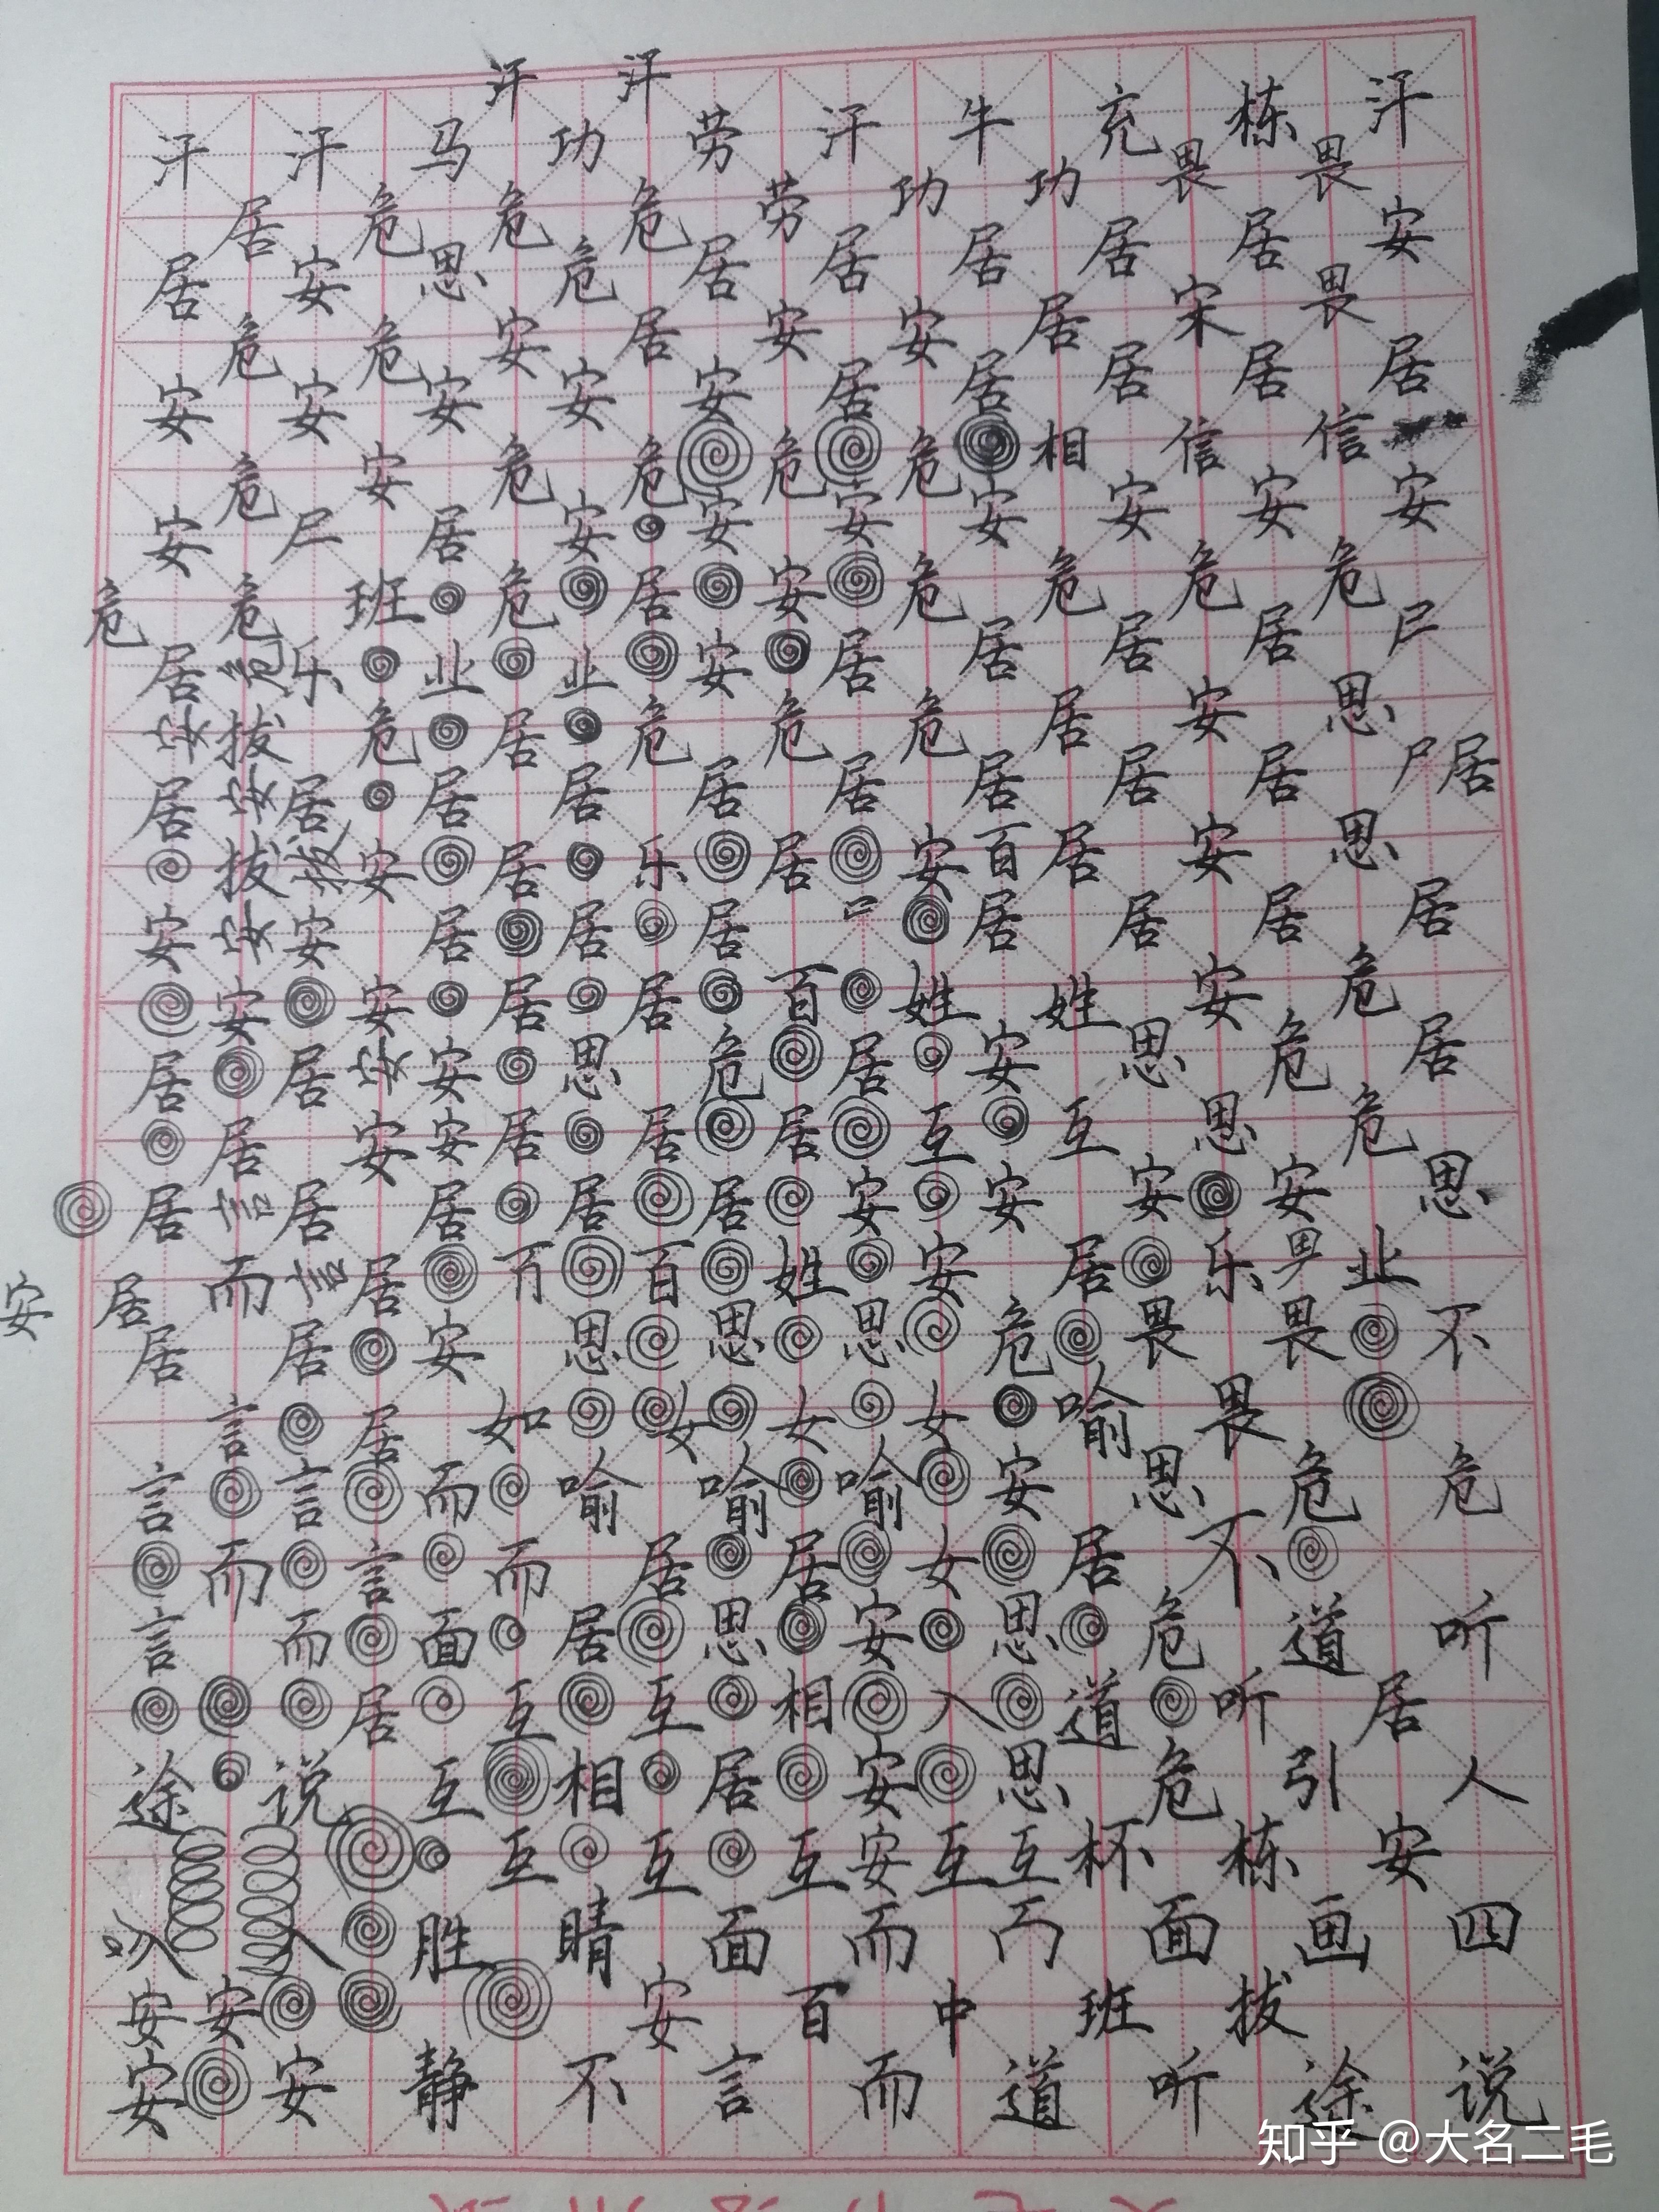 汗 汗
汗 汗 马 功 劳 汗 牛 充 栋 汗
居 危 危 危 劳 功 功 畏 畏
居 安 思 危 居 居 居 居 居 安
危 危 安 居 安 安 居 宋 畏
安 安 安 安 安 居 居 居 居 居
危 安 危 危 危 危 相 信 信
安 尸 居 安 安 安 安 安 安 安
危 危 班 危 居 安 危 危 危 危
居 乐 业 业 安 居 居 居 居 尸
拔 危 居 危 危 危 居 安 思
居 居 居 居 居 居 居 居 居 尸 居
拔 安 居 乐 居 安 百 居 安 思
安 安 居 居 居 居 居 居 居
安 安 居 居 百 姓 姓 安 危
居 居 安 思 危 居 安 思 危 居
居 安 安 居 居 居 互 互 思 危
居 居 居 居 居 安 安 安 安 思
安 居 而 居 百 姓 安 居 乐 男 业
居 居 安 思 思 思 危 畏 畏 不
言 居 如 女 女 女 喻 畏
言 言 而 喻 喻 喻 安 思 危 危
而 言 而 居 居 女 居 不
言 而 面 居 思 安 思 危 道 听
居 互 互 相 入 道 听 居
途 说 互 相 居 安 思 危 引 人
互 互 互 安 互 互 杯 栋 安
入 胜 睛 面 而 面 画 四
安 安 安 百 中 班 拔
安 安 静 不 言 而 道 听 途 说
知乎 @大名二毛